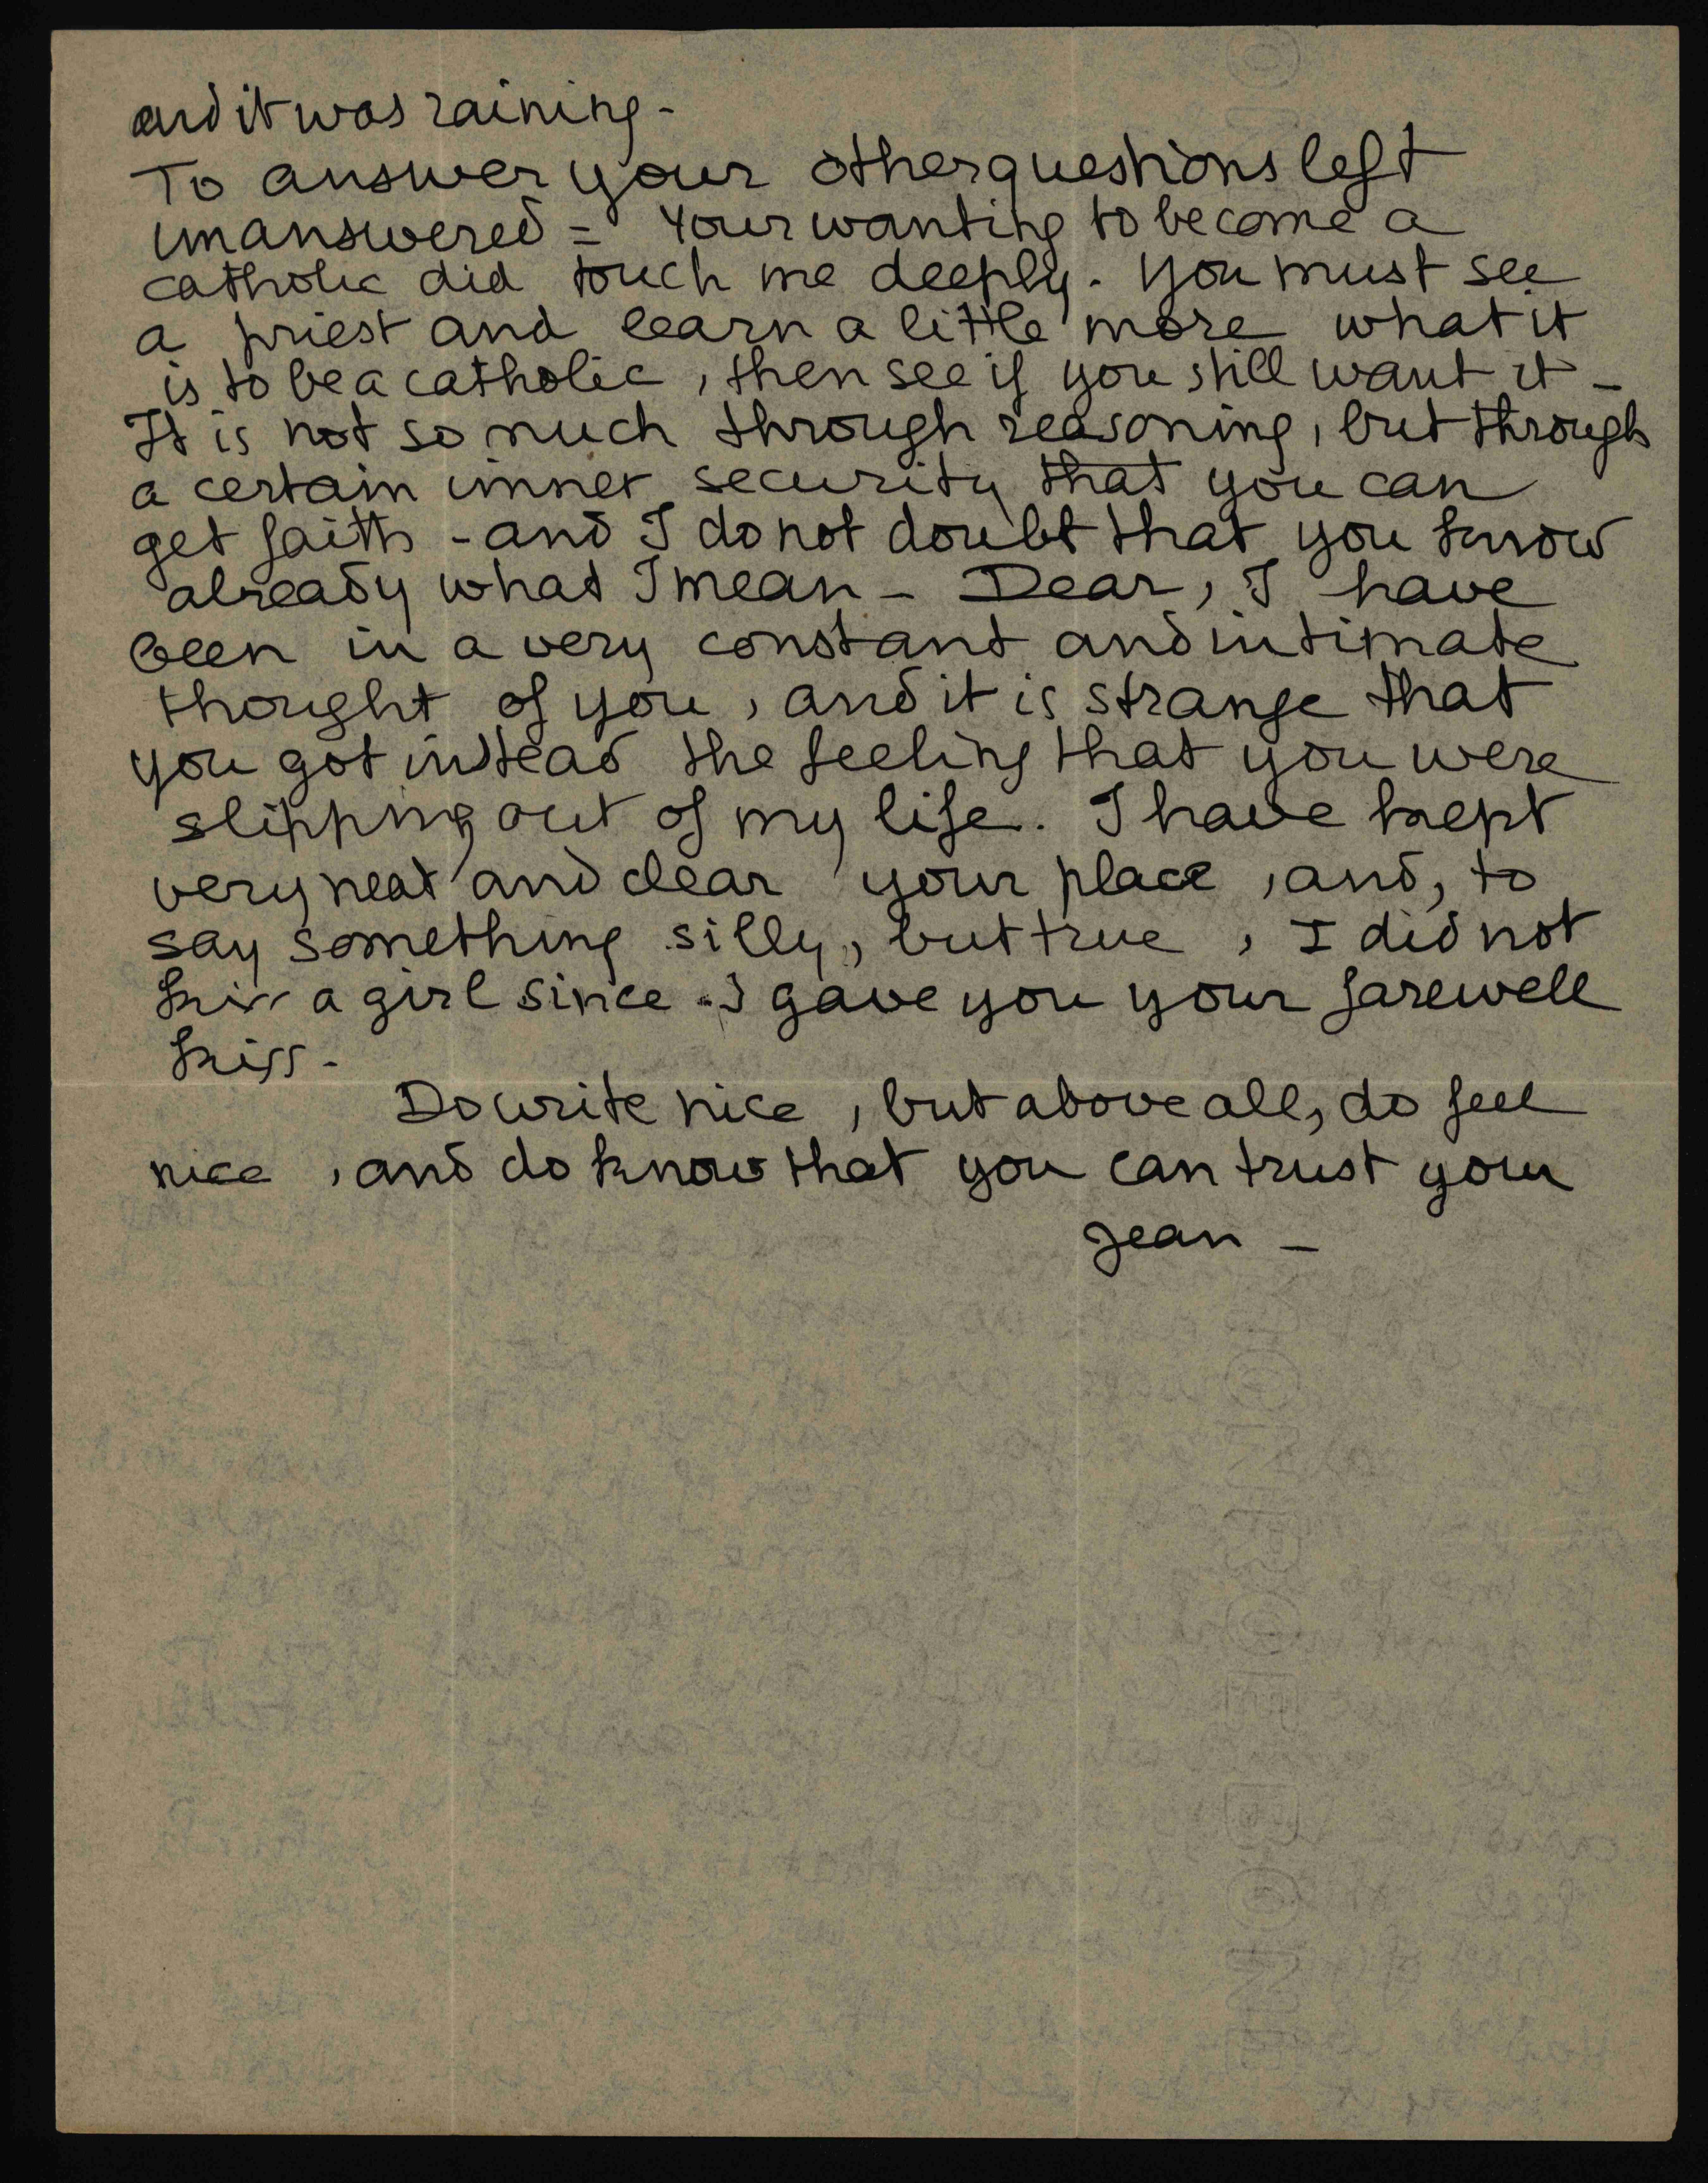 and it was raining -
To answer your other questions left
unanswered = Your wanting to become a
catholic did touch me deeply. You must see
a priest and learn a little more what it
is to be a catholic, then see if you still want it -
It is not so much through reasoning, but through
a certain inner security that you can
get faith - and I do not doubt that you know
already what I mean - Dear, I have
been in a very constant and intimate
thought of you, and it is strange that
you got instead the feeling that you were
slipping out of my life. I have kept
very neat and clear your place, and, to
say something silly, but true, I did not
kiss a girl since I gave you your farewell
kiss -
Do write nice, but above all, do feel
nice, and do know that you can trust your
Jean -